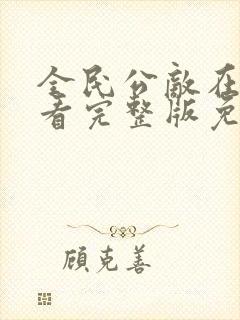 全民公敌在
看完整版免
顾克善